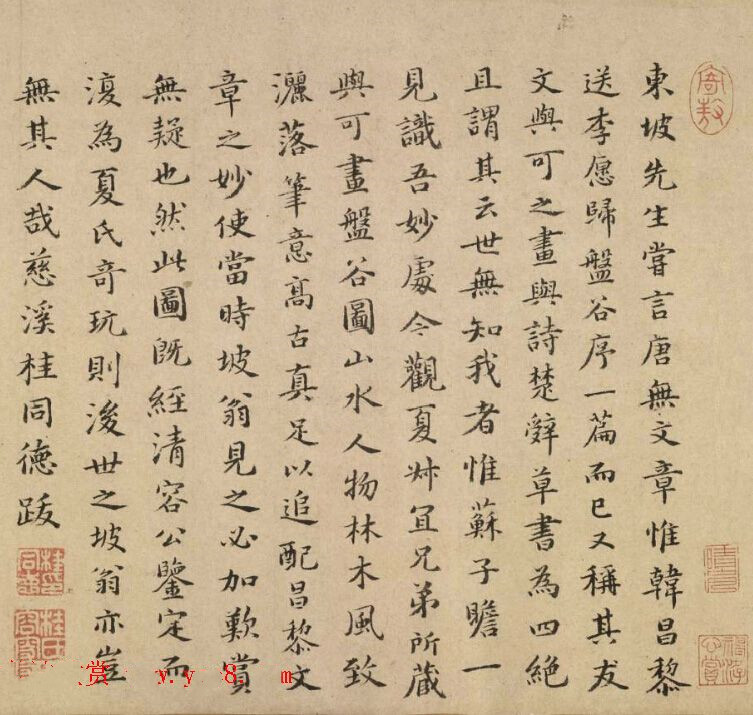 東坡先生嘗言唐無文章惟韓昌黎
送李愿歸盤谷序一篇而已又稱其友
文與可之畫與詩楚辭草書為四絕
且謂其云世無知我者惟蘇子瞻一
見識吾妙處今觀夏叔冝兄弟所藏
與可畫盤谷圖山水人物林木風致
灑落筆意高古真足以追配昌黎文
章之妙使當時坡翁見之必加歎賞
無疑也然此圖既經清容公鑒定而
復為夏氏奇玩則後世之坡翁亦豈
無其人哉慈溪桂同德跋
赏 y.y 8. m